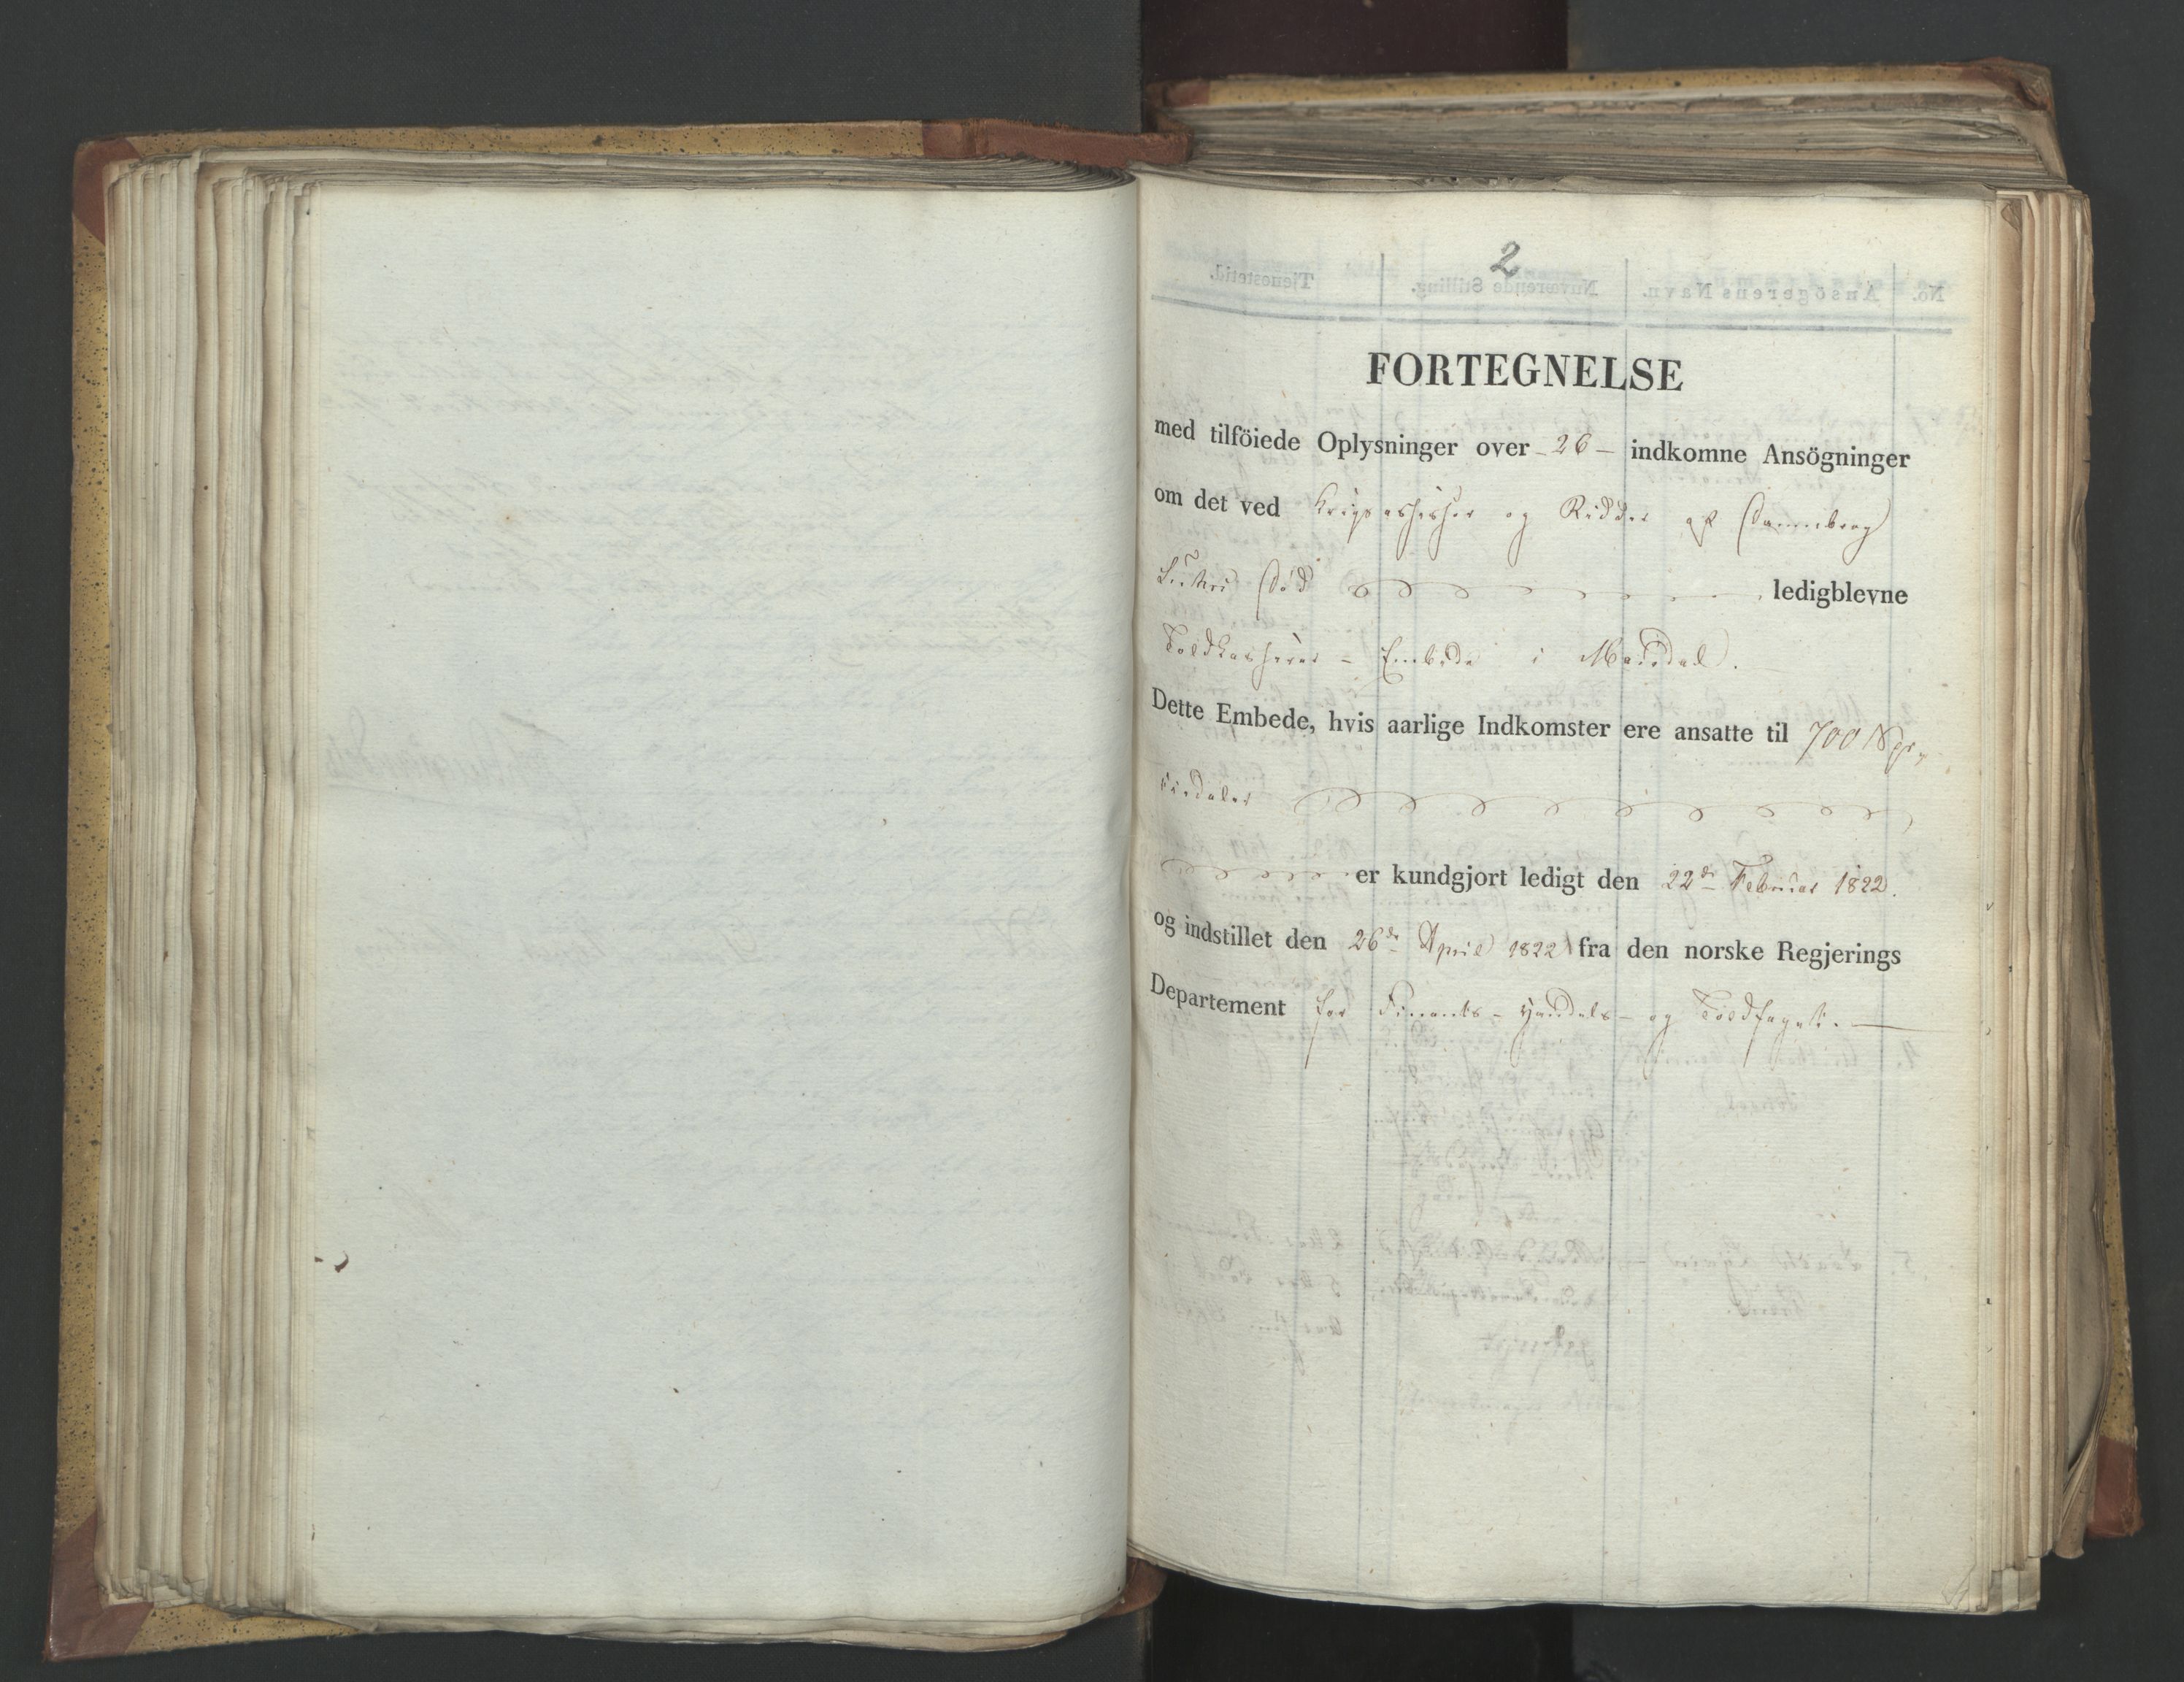 2
FORTEGNELSE
med tilföiede Oplysninger over - 26 - indkomne Ansögninger
om det ved og Ridder af Dannebrog
Död ledigblevne
Toldkasserer - Embede i Mandal.
Dette Embede, hvis aarlige Indkomster ere ansatte til 700
er kundgjort ledigt den 22de Februar 1822.
og indstillet den 26de April 1822 fra den norske Regjerings
Departement for Finants- Handels- og Toldfaget.